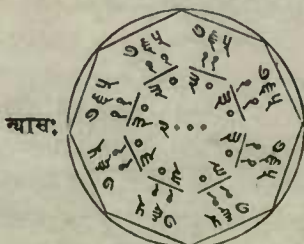 न्यासः
७६५
११
३०
७६५
११
३०
७६५
११
३०
७६५
११
३०
७६५
११
३०
७६५
११
३०
७६५
११
३०
७६५
११
३०
२०००